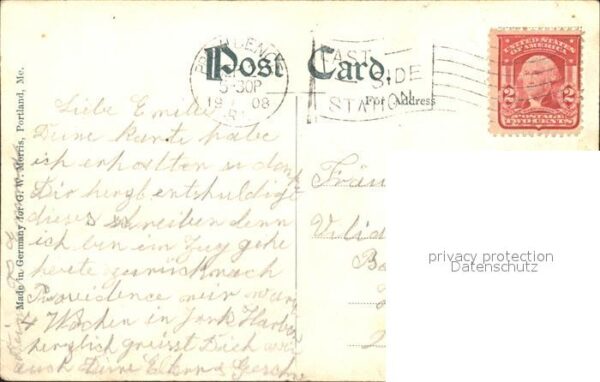 Post Card.
For Address
PROVIDENCE
5-30P
19 08
R.I.
EAST
SIDE
STATION
UNITED STATES
OF AMERICA
2 2
POSTAGE
TWO CENTS
Made in Germany for G. W. Morris, Portland, Me.
Liebe Emilie
Deine Karte habe
ich erhalten u dank
Dir herzl entschuldigt
dieses schreiben denn
ich bin im Zug gehe
heute zurück nach
Providence wir waren
4 Wochen in York Harbor
herzlich grüsst Dich wie
auch Deine Eltern u Gesch
Fräu
privacy protection
Datenschutz